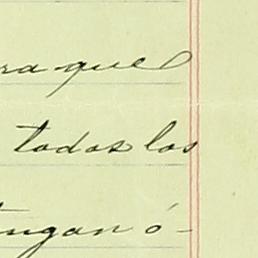 ra que
todos los
tengan ó-